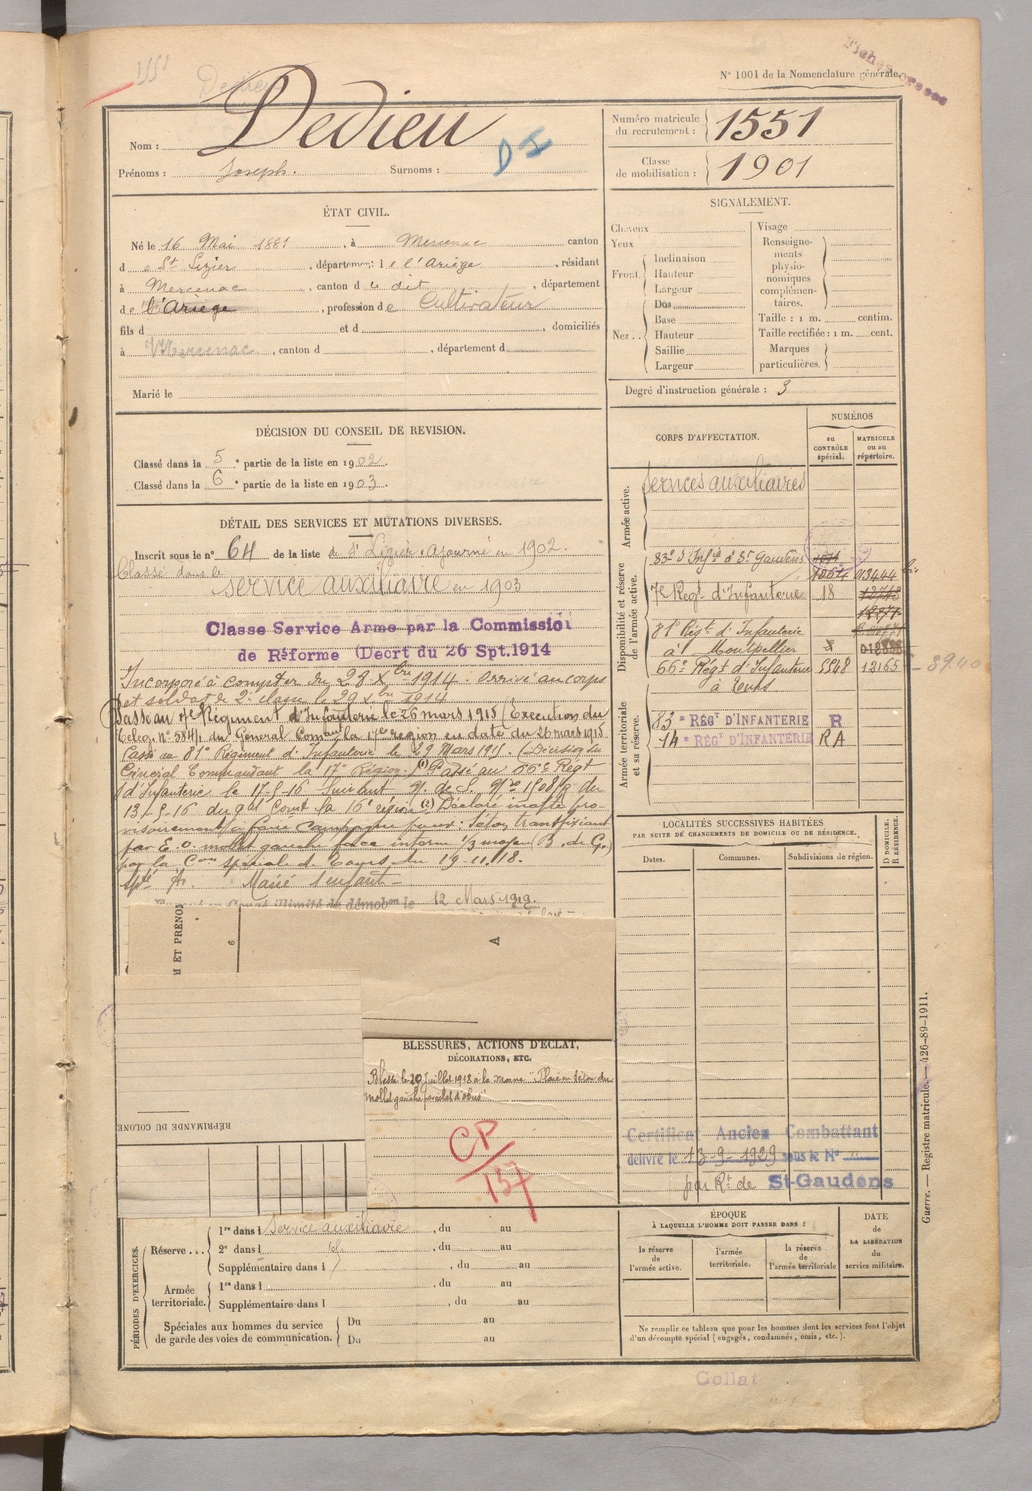 N° 1001 de la Nomenclature générale.
1551
Nom : Dedieu
DI
Prénoms : Joseph. Surnoms :
Numéro matricule du recrutement : 1551
Classe de mobilisation : 1901
ÉTAT CIVIL.
Né le 16 Mai 1881, à Mercenac canton
d e St Lizier, département d e l'Ariège, résidant
à Mercenac, canton d u dit, département
de l'Ariège, profession de Cultivateur
fils d et d, domiciliés
à Mercenac, canton d, département d
Marié le
SIGNALEMENT.
Cheveux
Yeux
Front.
Inclinaison
Hauteur
Largeur
Nez..
Dos
Base
Hauteur
Saillie
Largeur
Visage
Renseignements physionomiques complémentaires.
Taille : 1 m. centim.
Taille rectifiée : 1 m. cent.
Marques particulières.
Degré d'instruction générale : 3
DÉCISION DU CONSEIL DE REVISION.
Classé dans la 5e partie de la liste en 1902.
Classé dans la 6e partie de la liste en 1903.
DÉTAIL DES SERVICES ET MUTATIONS DIVERSES.
Inscrit sous le n° 64 de la liste de St Lizier. ajourné en 1902.
Classé dans le service auxiliaire en 1903
Classe Service Arme par la Commission
de Réforme (Decrt du 26 Spt.1914
Incorporé à compter du 29 Xbre 1914. Arrivé au corps
et soldat de 2e classe le 29 Xbre 1914
Passé au 7e Régiment d'Infanterie le 26 mars 1915 (Execution du
Teleg. N° 584/1 du Général Comt la 17e région en date du 26 mars 1915
Passé au 81e Régiment d'Infanterie le 29 Mars 1915. (Décision du
Général Commandant la 17e Région. (1) Passé au 66e Regt
d'Infanterie le 17-5-16 Suivant
13-5-16 du gal Comt la 16e région (2) Déclaré inapte pro-
visoirement à faire campagne pour: Séton transfixiant
par E. O. mollet gauche face interne 1/3 moyen (B. de G.)
par la Con spéciale de Tours du 19.11.18.
Marié 1 enfant
Congé illimité de démobon le 12 Mars 1919.
CORPS D'AFFECTATION.
NUMÉROS
au CONTRÔLE spécial.
MATRICULE ou au répertoire.
Armée active.
services auxiliaires
Disponibilité et réserve de l'armée active.
83e d'Infie à St Gaudens
7e Regt d'Infanterie 18
81e Régt d'Infanterie
à Montpellier
66e Régt d'Infanterie 5548 12165
à Tours
Armée territoriale et sa réserve.
83e RÉGT D'INFANTERIE R
14e RÉGT D'INFANTERIE RA
LOCALITÉS SUCCESSIVES HABITÉES
PAR SUITE DE CHANGEMENTS DE DOMICILE OU DE RÉSIDENCE.
Dates.
Communes.
Subdivisions de région.
D DOMICILE. R RÉSIDENCE.
M ET PRÉNOM
6
A
RÉPRIMANDE DU COLONE
BLESSURES, ACTIONS D'ÉCLAT,
DÉCORATIONS, ETC.
Blessé le 20 Juillet 1918 à la marne "Plaie en Séton du
mollet gauche par éclat d'obus"
CP/157
Certificat Ancien Combattant
délivré le 13-9-1929 sous le N°
par Rt de St-Gaudens
PÉRIODES D'EXERCICES.
Réserve ...
1re dans l service auxiliaire, du au
2e dans l, du au
Supplémentaire dans l, du au
Armée territoriale.
1re dans l, du au
Supplémentaire dans l, du au
Spéciales aux hommes du service de garde des voies de communication.
Du au
Du au
ÉPOQUE
À LAQUELLE L'HOMME DOIT PASSER DANS :
la réserve de l'armée active.
l'armée territoriale.
la réserve de l'armée territoriale
DATE de LA LIBÉRATION du service militaire.
Ne remplir ce tableau que pour les hommes dont les services font l'objet
d'un décompte spécial (engagés, condamnés, omis, etc.).
Guerre. — Registre matricule. — 426-89-1911.
Collat